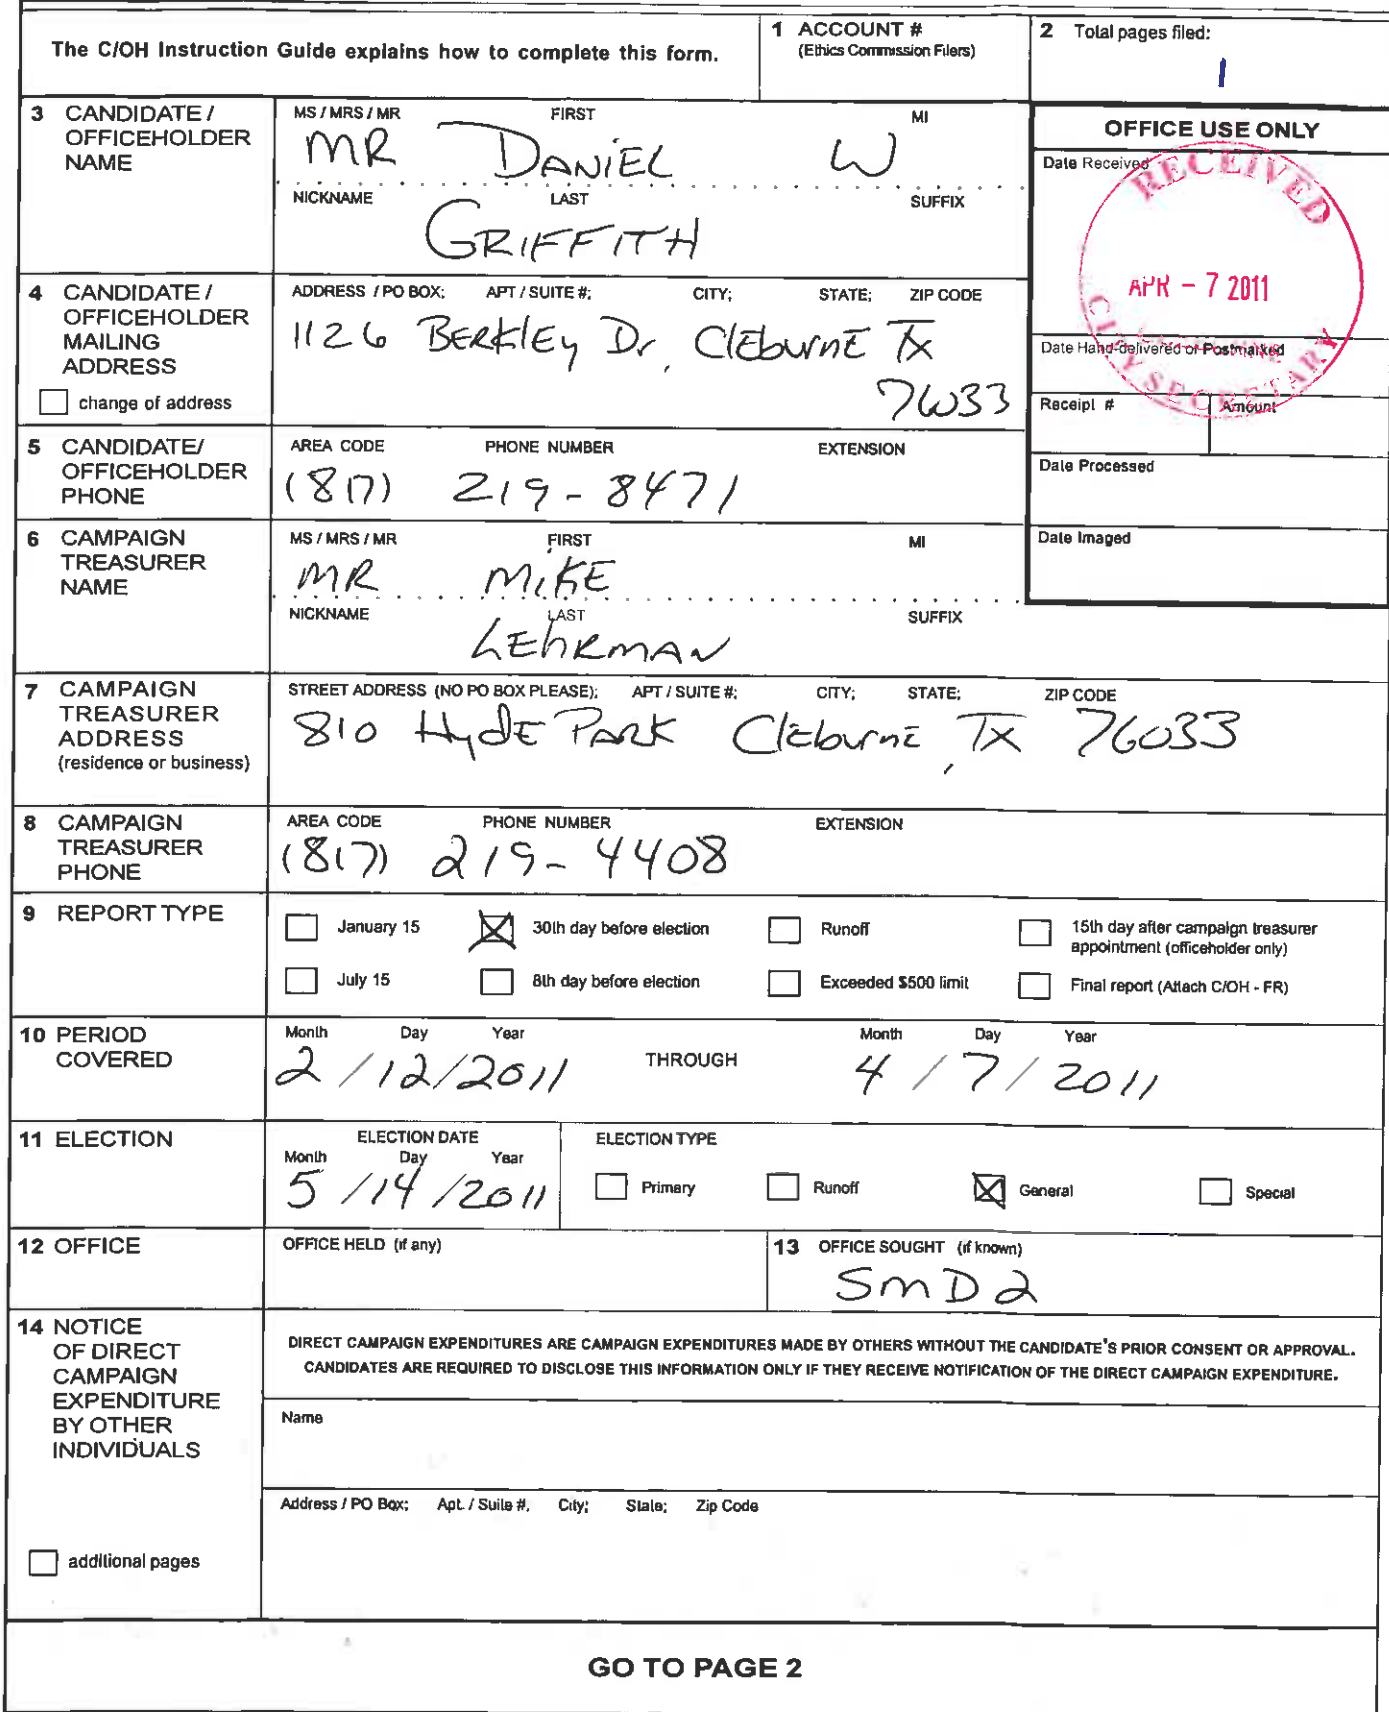 The C/OH Instruction Guide explains how to complete this form.
1 ACCOUNT #
(Ethics Commission Filers)
2 Total pages filed:
1
3 CANDIDATE / OFFICEHOLDER NAME
MS / MRS / MR FIRST MI
MR DANIEL W
NICKNAME LAST SUFFIX
GRIFFITH
OFFICE USE ONLY
Date Received
RECEIVED
APR - 7 2011
CITY SECRETARY
Date Hand-delivered or Postmarked
Receipt # Amount
Date Processed
Date Imaged
4 CANDIDATE / OFFICEHOLDER MAILING ADDRESS
change of address
ADDRESS / PO BOX; APT / SUITE #; CITY; STATE; ZIP CODE
1126 BERKlEy Dr, ClEburnE TX
76033
5 CANDIDATE/ OFFICEHOLDER PHONE
AREA CODE PHONE NUMBER EXTENSION
(817) 219-8471
6 CAMPAIGN TREASURER NAME
MS / MRS / MR FIRST MI
MR MiKE
NICKNAME LAST SUFFIX
LEhRMAN
7 CAMPAIGN TREASURER ADDRESS
(residence or business)
STREET ADDRESS (NO PO BOX PLEASE); APT / SUITE #; CITY; STATE; ZIP CODE
810 HydE PARK ClEburnE, TX 76033
8 CAMPAIGN TREASURER PHONE
AREA CODE PHONE NUMBER EXTENSION
(817) 219-4408
9 REPORT TYPE
January 15 30th day before election Runoff 15th day after campaign treasurer appointment (officeholder only)
July 15 8th day before election Exceeded $500 limit Final report (Attach C/OH - FR)
10 PERIOD COVERED
Month Day Year THROUGH Month Day Year
2 / 12 / 2011 4 / 7 / 2011
11 ELECTION
ELECTION DATE
Month Day Year
5 / 14 / 2011
ELECTION TYPE
Primary Runoff General Special
12 OFFICE
OFFICE HELD (if any)
13 OFFICE SOUGHT (if known)
SmD2
14 NOTICE OF DIRECT CAMPAIGN EXPENDITURE BY OTHER INDIVIDUALS
additional pages
DIRECT CAMPAIGN EXPENDITURES ARE CAMPAIGN EXPENDITURES MADE BY OTHERS WITHOUT THE CANDIDATE'S PRIOR CONSENT OR APPROVAL.
CANDIDATES ARE REQUIRED TO DISCLOSE THIS INFORMATION ONLY IF THEY RECEIVE NOTIFICATION OF THE DIRECT CAMPAIGN EXPENDITURE.
Name
Address / PO Box; Apt. / Suite #; City; State; Zip Code
GO TO PAGE 2